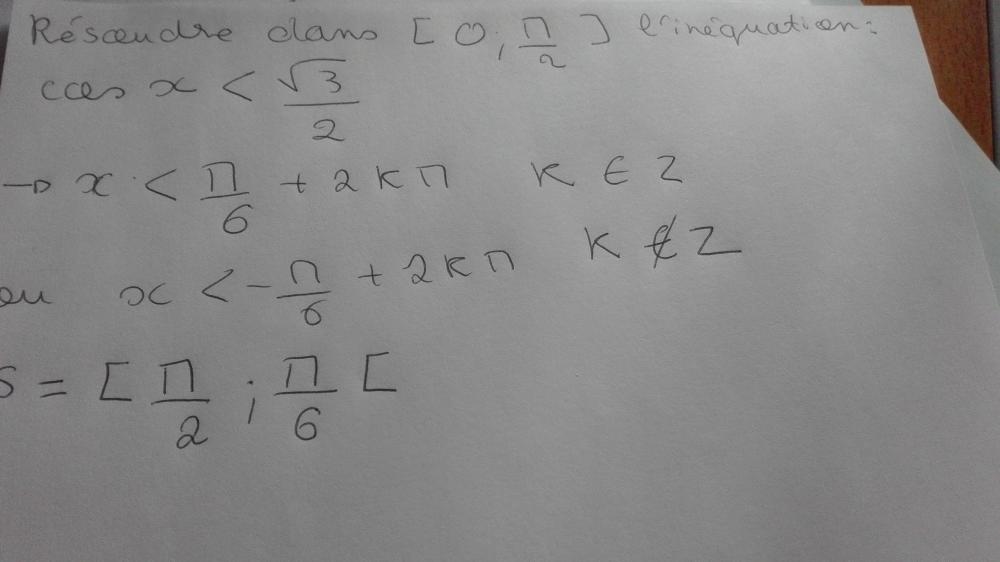 Résoudre dans [ 0 ; π/2 ] l'inéquation :
cos x < √3/2
→ x < π/6 + 2kπ K ∈ Z
ou x < -π/6 + 2kπ K ∉ Z
S = [ π/2 ; π/6 [